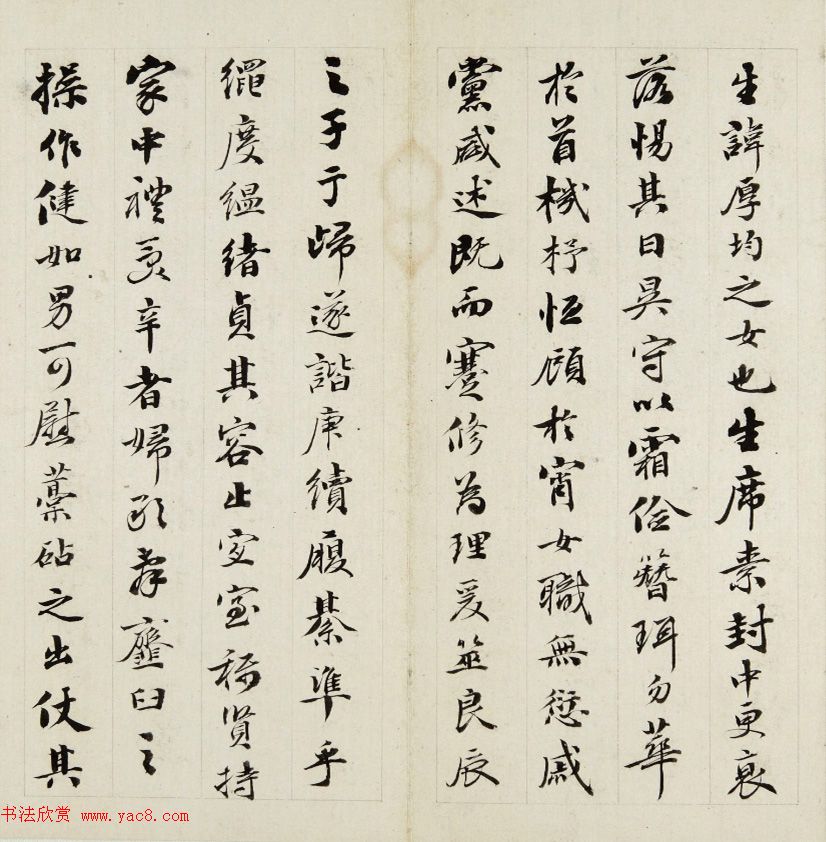 生諱厚均之女也生席素封中更衰
落惕其日昃守以霜儉簪珥勿華
於首機杼恒顧於宵女職無愆戚
黨咸述既而蹇修為理爰筮良辰
之子于歸遂諧庚續履綦準乎
繩度縕緒貞其容止宜室稱賢持
家中禮受辛者婦臼之
操作健如男可慰藁砧之出仗其
书法欣赏 www.yac8.com